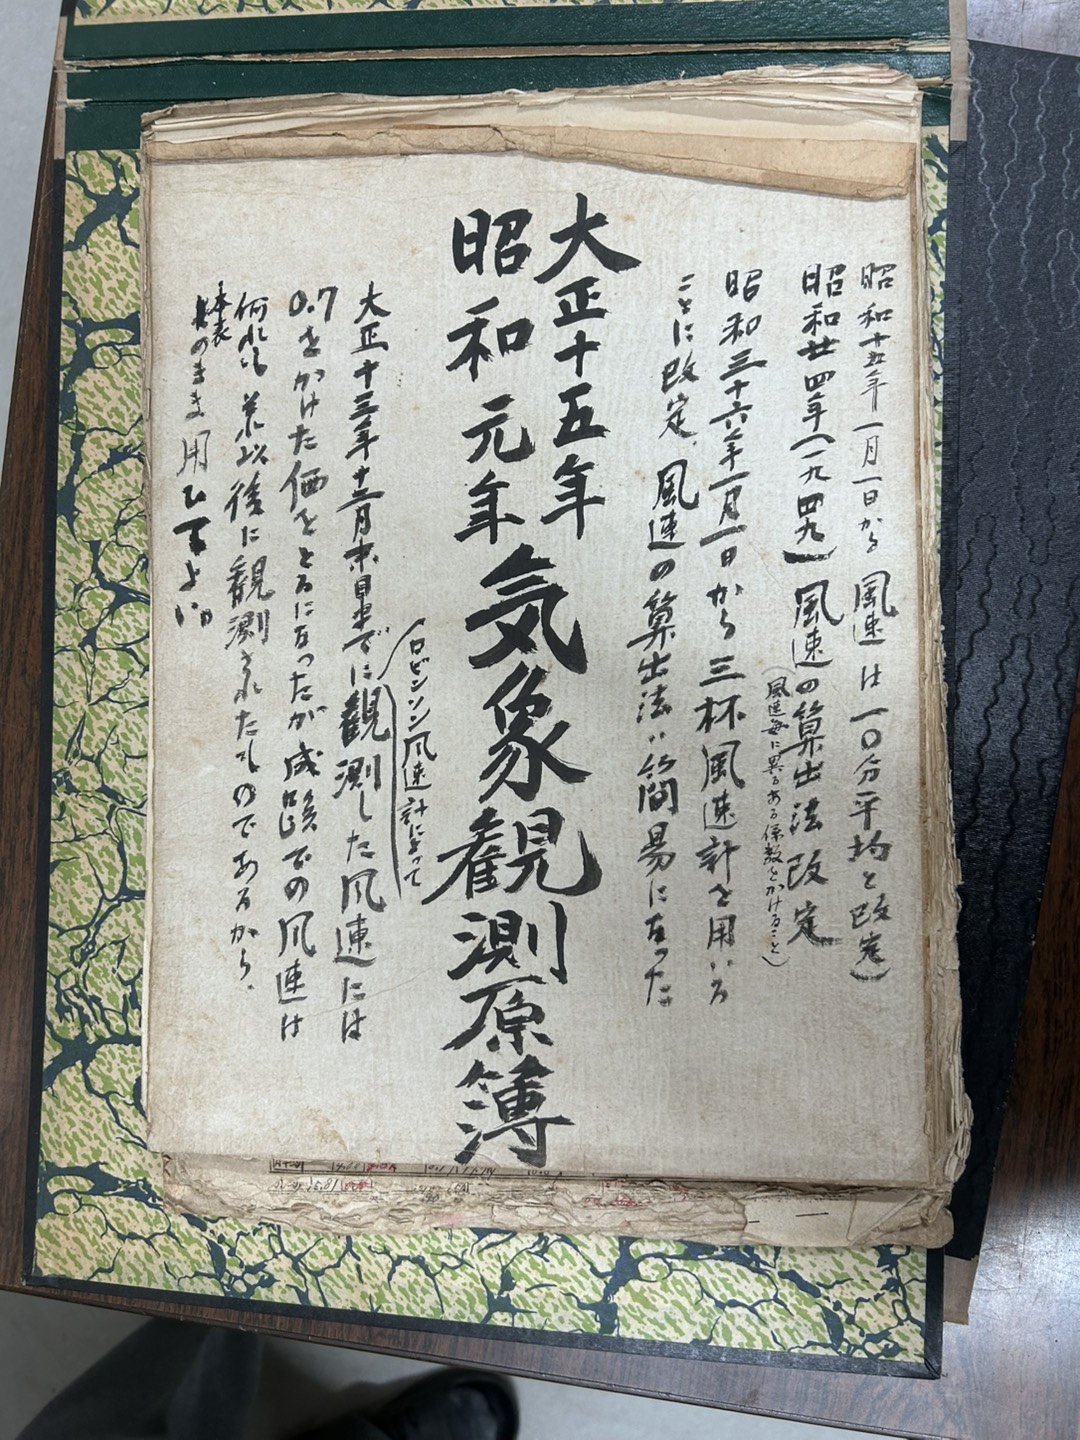 昭和十五年一月一日から風速は一〇分平均と改定)
昭和廿四年(一九四九)風速の算出法改定
(風速毎に異るある係数をかけること)
昭和三十六年一月一日から三杯風速計を用いる
ことに改定、風速の算出法は簡易になった
大正十五年
昭和元年
気象観測原簿
ロビンソン風速計によって
大正十三年十二月末日までに観測した風速には
0.7をかけた価をとるになったが成績での風速は
何れも 以後に観測されたものであるから、
本表
のまま用ひてよい